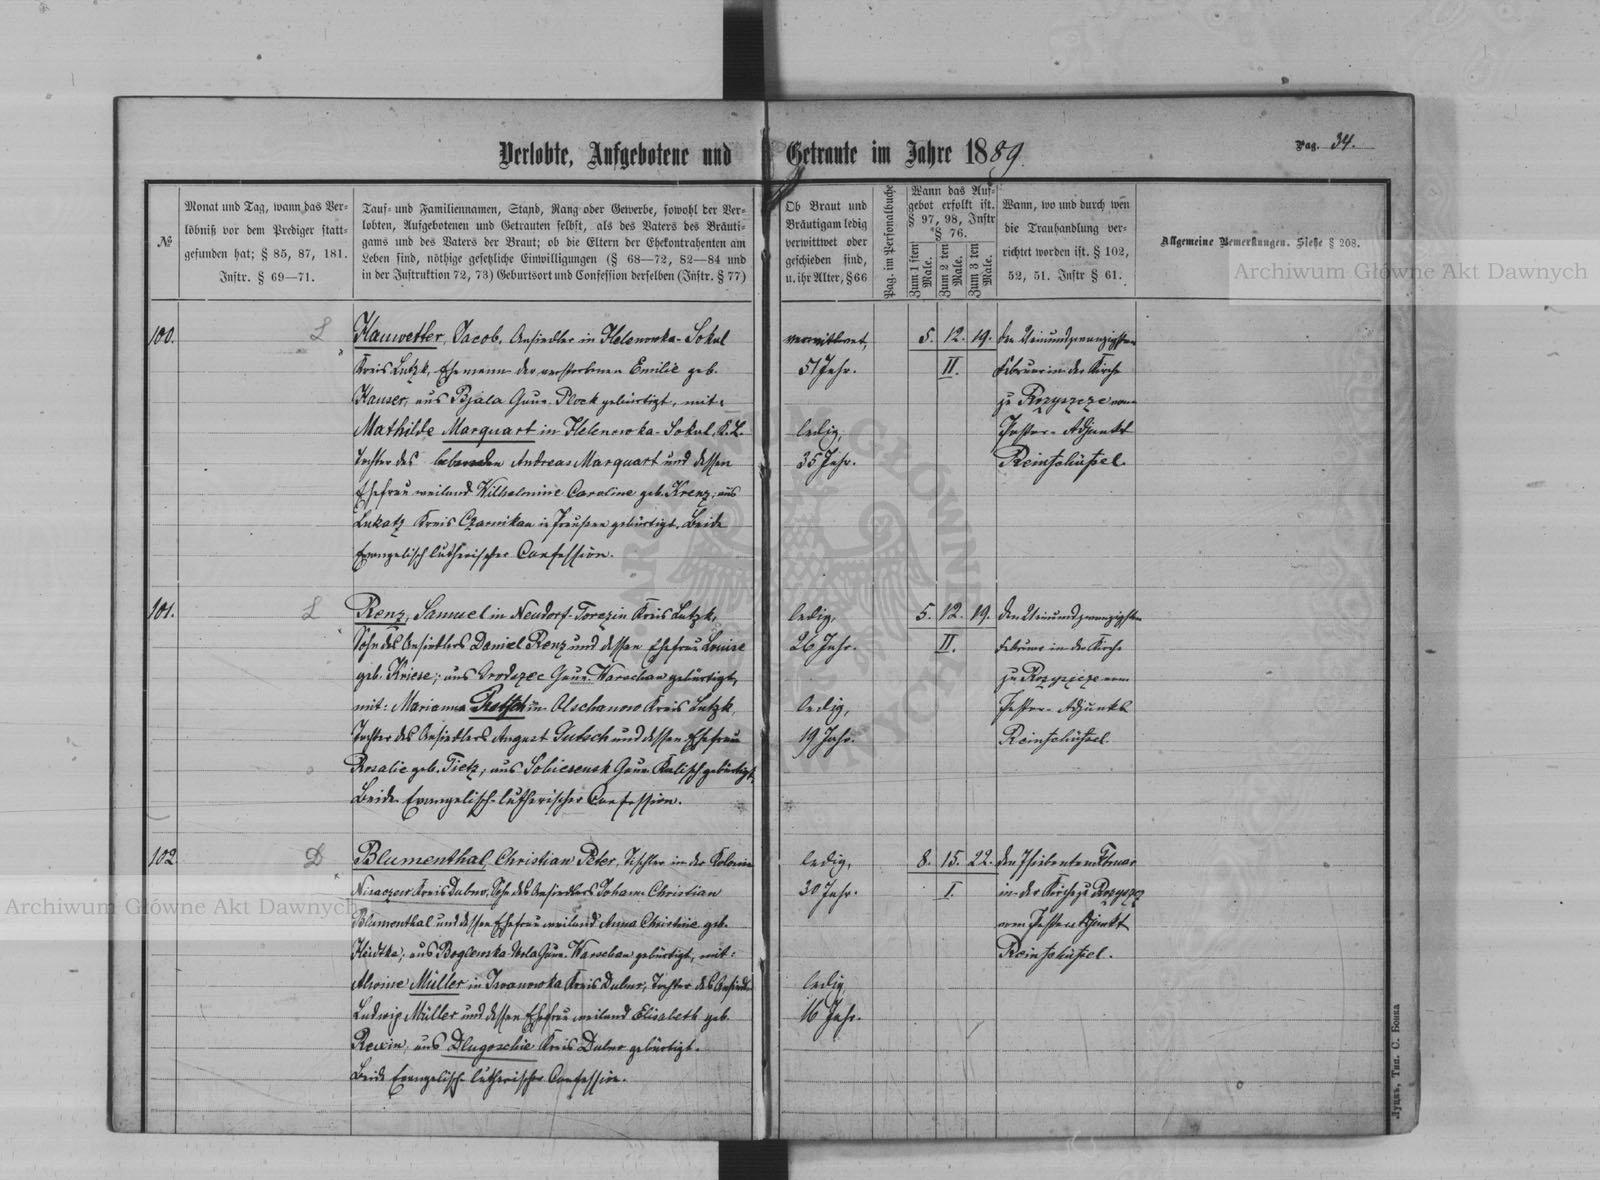 Verlobte, Aufgebotene und Getraute im Jahre 1889.
Pag. 34.
№
Monat und Tag, wann das Ver-
löbniß vor dem Prediger statt-
gefunden hat; § 85, 87, 181.
Instr. § 69—71.
Tauf- und Familiennamen, Stand, Rang oder Gewerbe, sowohl der Ver-
lobten, Aufgebotenen und Getrauten selbst, als des Vaters des Bräuti-
gams und des Vaters der Braut; ob die Eltern der Ehekontrahenten am
Leben sind, nöthige gesetzliche Einwilligungen (§ 68—72, 82—84 und
in der Instruktion 72, 73) Geburtsort und Confession derselben (Instr. § 77)
Ob Braut und
Bräutigam ledig
verwittwet oder
geschieden sind,
u. ihr Alter, § 66
Pag. im Personalbuche
Wann das Auf-
gebot erfolkt ist.
§ 97, 98, Instr
§ 76.
Zum 1 sten Male.
Zum 2 ten Male.
Zum 3 ten Male.
Wann, wo und durch wen
die Trauhandlung ver-
richtet worden ist. § 102,
52, 51. Instr § 61.
Allgemeine Bemerkungen. Siehe § 208.
Archiwum Główne Akt Dawnych
100.
L
Hauwetter, Jacob, Ansiedler in Helenowka-Sokul
Kreis Lutzk, Ehemann der verstorbenen Emilie geb.
Hauser, aus Bjala Gouv. Plock gebürtigt, mit:
Mathilde Marquart in Helenowka-Sokul, K. L.
Tochter des lebenden Andreas Marquart und dessen
Ehefrau weiland Wilhelmine Caroline geb. Krenz, aus
Lukatz Kreis Czarnikau in Preußen gebürtigt. Beide
Evangelisch lutherischer Confession.
verwittwet,
51 Jahr.
ledig,
35 Jahr.
5. 12. 19.
II.
den Neunundzwanzigsten
Februar in der Kirche
zu Rozyszcze vom
Pastor-Adjunkt
Reinschüssel.
101.
L
Renz, Samuel in Neudorf-Torczin Kreis Lutzk,
Sohn des Ansiedlers Daniel Renz und dessen Ehefrau Louise
geb. Kriese; aus Grodziec Gouv. Warschau gebürtigt,
mit: Marianna in Olschanow Kreis Lutzk,
Tochter des Ansiedlers August Gutsch und dessen Ehefrau
Rosalie geb. Tietz, aus Gouv. Kalisch gebürtigt,
Beide Evangelisch-lutherischer Confession.
ledig,
26 Jahr.
ledig,
19 Jahr.
5. 12. 19.
II.
den Neunundzwanzigsten
Februar in der Kirche
zu Rozyszcze vom
Pastor-Adjunkt
Reinschüssel.
102
D
Blumenthal, Christian Peter, Tischler in der Kolonie
Kreis Dubno, Sohn des Ansiedlers Johann Christian
Blumenthal und dessen Ehefrau weiland Anna Christine geb.
Heidtke; aus Gouv. Warschau gebürtigt, mit:
Alwine Müller in Iwanowka Kreis Dubno, Tochter des Ansiedl.
Ludwig Müller und dessen Ehefrau weiland Elisabeth geb.
aus Dlugoschie Kreis Dubno gebürtigt.
Beide Evangelisch-lutherischer Confession.
ledig,
30 Jahr.
ledig,
16 Jahr.
8. 15. 22.
I.
in der Kirche zu Rozyszcz
vom Pastor Adjunkt
Reinschüssel.
Archiwum Główne Akt Dawnych
Луцкъ, Тип. С. Бонка
Archiwum Główne Akt Dawnych